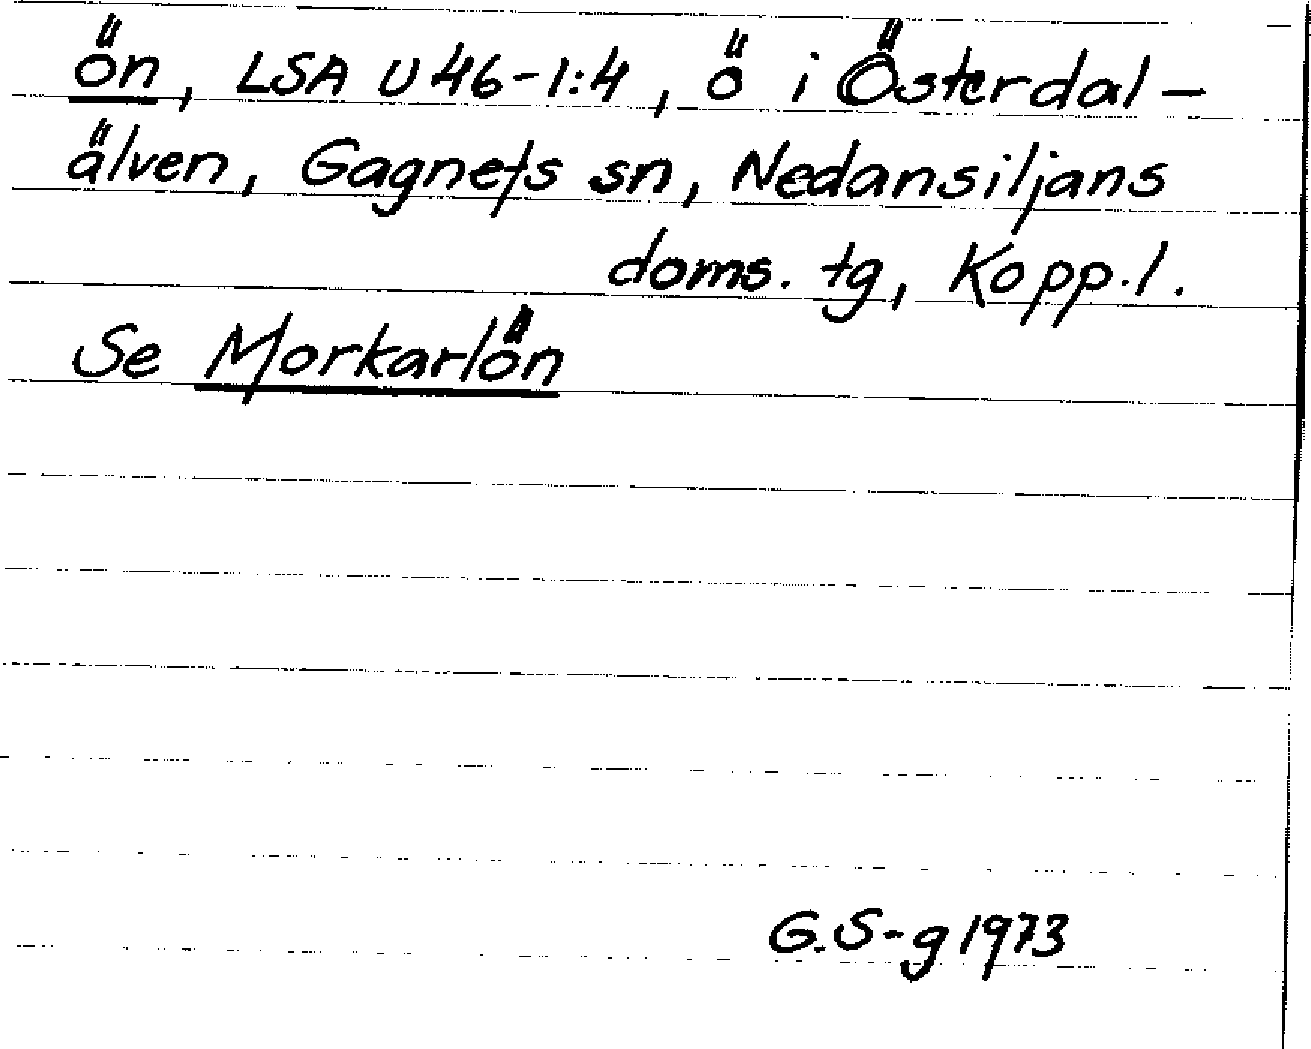 ön, LSA U 46-1:4, ö i Österdal-
älven, Gagnefs sn, Nedansiljans
doms. tg, Kopp. l.
Se Morkarlön
G.S-g 1973